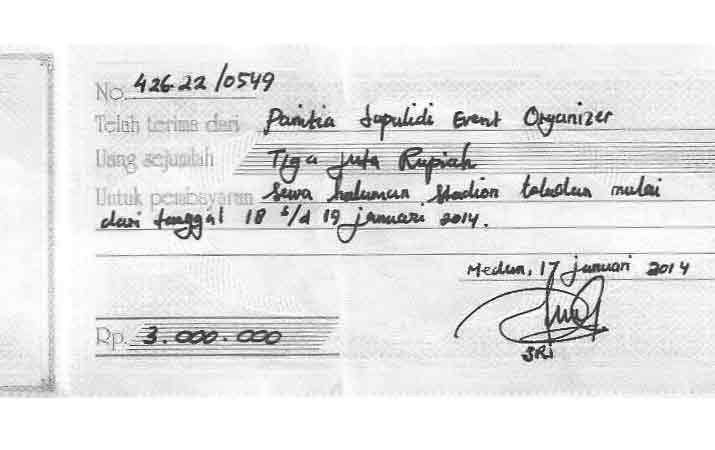 No. 426.22/0549
Telah terima dari Panitia Sapulidi Event Organizer
Uang sejumlah Tiga juta Rupiah
Untuk pembayaran Sewa halaman Stadion teladan mulai
dari tanggal 18 s/d 19 januari 2014.
Medan, 17 januari 2014
Rp. 3.000.000
SRi